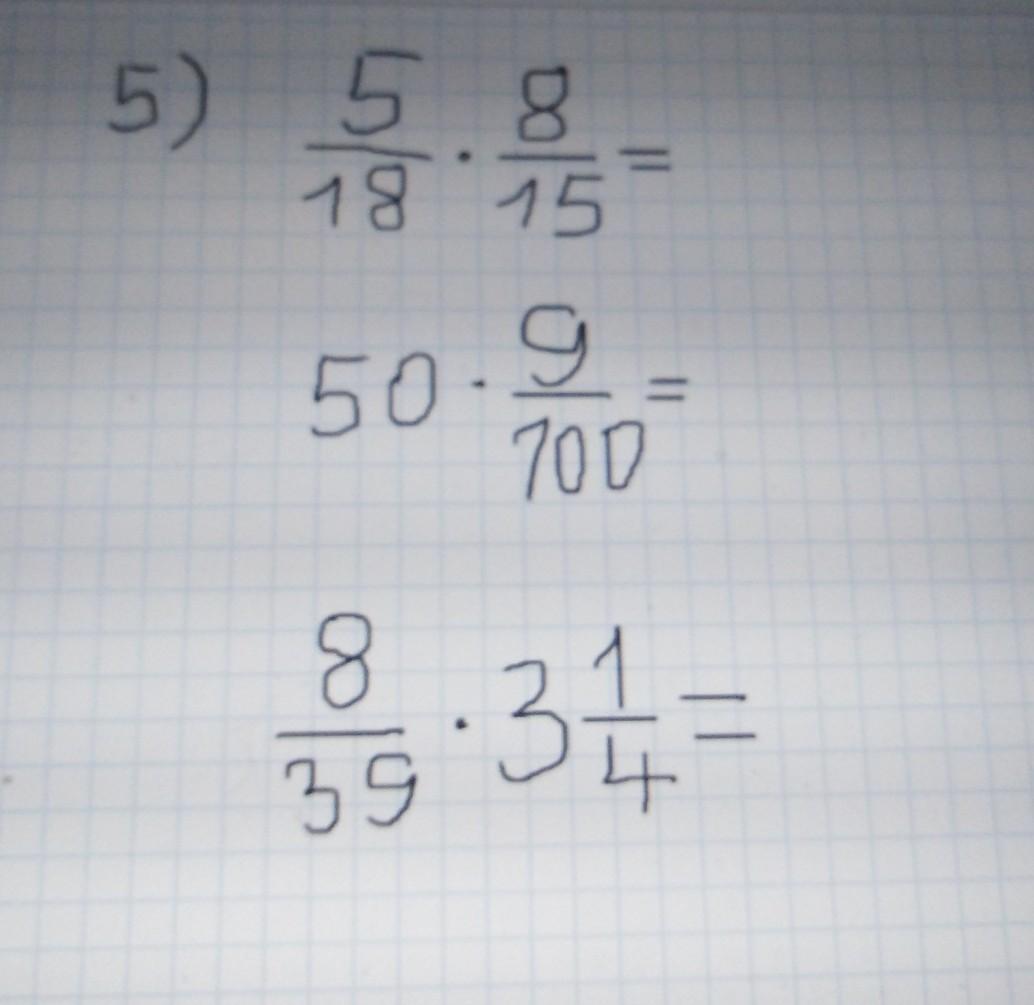 5) 5/18 · 8/15 =
50 · 9/100 =
8/39 · 3 1/4 =